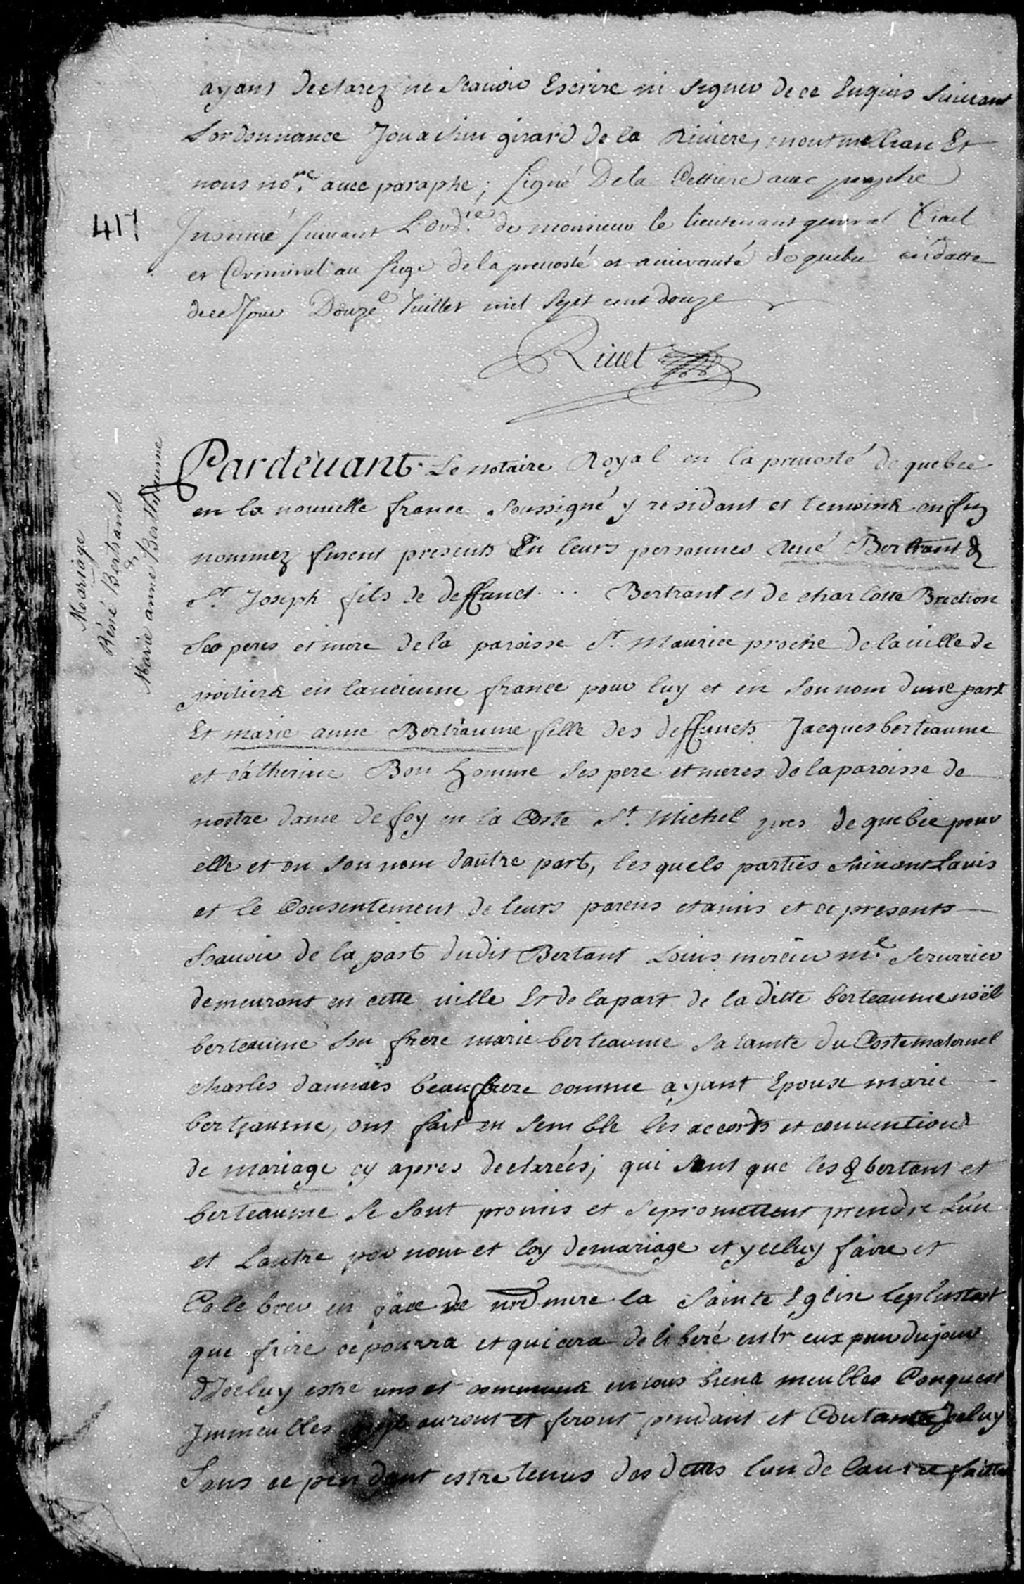 ayans declarez ne scavoir Escrire ni signer de ce Enquis suivant
Lordonnance Jouachin girard de la Riviere, montmellian Et
nous no.re avec paraphe; signé Dela Cettiere avec paraphe
Insinué suivant L'ord.ce de monsieur le lieutenant general Civil
et Criminel au siege de la prevosté et amirauté de quebec en datte
de ce Jour Douze.e Juillet mil sept cent douze
Rivet
417
Mariage
Réné Bertrand
&
Marie anne Berthiaume
Pardevant Le notaire Royal en la prevosté de quebec
en la nouvelle france soussigné y residant et temoins enfin
nommez furent presents En leurs personnes René Bertrant d
St. Joseph fils de deffunct ... Bertrant et de charlotte Bretion
ses peres et mere de la paroisse St. Maurice proche de la ville de
poitiers en lancienne france pour luy et en son nom dune part
Et marie anne Bertraume fille des deffuncts Jacques berteaume
et Catherine Bon homme ses pere et meres de la paroisse de
nostre dame de foy en la Coste St. Michel pres de quebec pour
elle et en son nom dautre part, lesquels parties suivant Lavis
et le Consentement de leurs parens et amis et ce presants
Scavoir de la part dudit Bertant Louis moreau me. serurrier
demeurant en cette ville Et de la part de la ditte berteaume noël
berteaume son frere marie berteaume sa tante du Coste maternel
charles dannais beaufrere comme ayant Epousé marie
berteaume, ont fait en semble les accords et conventions
de mariage cy apres declareés; qui sont que les d bertant et
berteaume se sont promis et se promettent prendre L'un
et Lautre par nom et loy de mariage et yceluy faire et
Celebrer en face de nre mere la Sainte Eglise le plustost
que faire ce pourra et qui cera deliberé entr eux pour du jour
d'Iceluy estre uns et communs en tous biens meubles Conquest
Immeubles quils auront et feront pendant et Constant Iceluy
Sans ce pendant estre tenus des dettes lun de lautre faittes